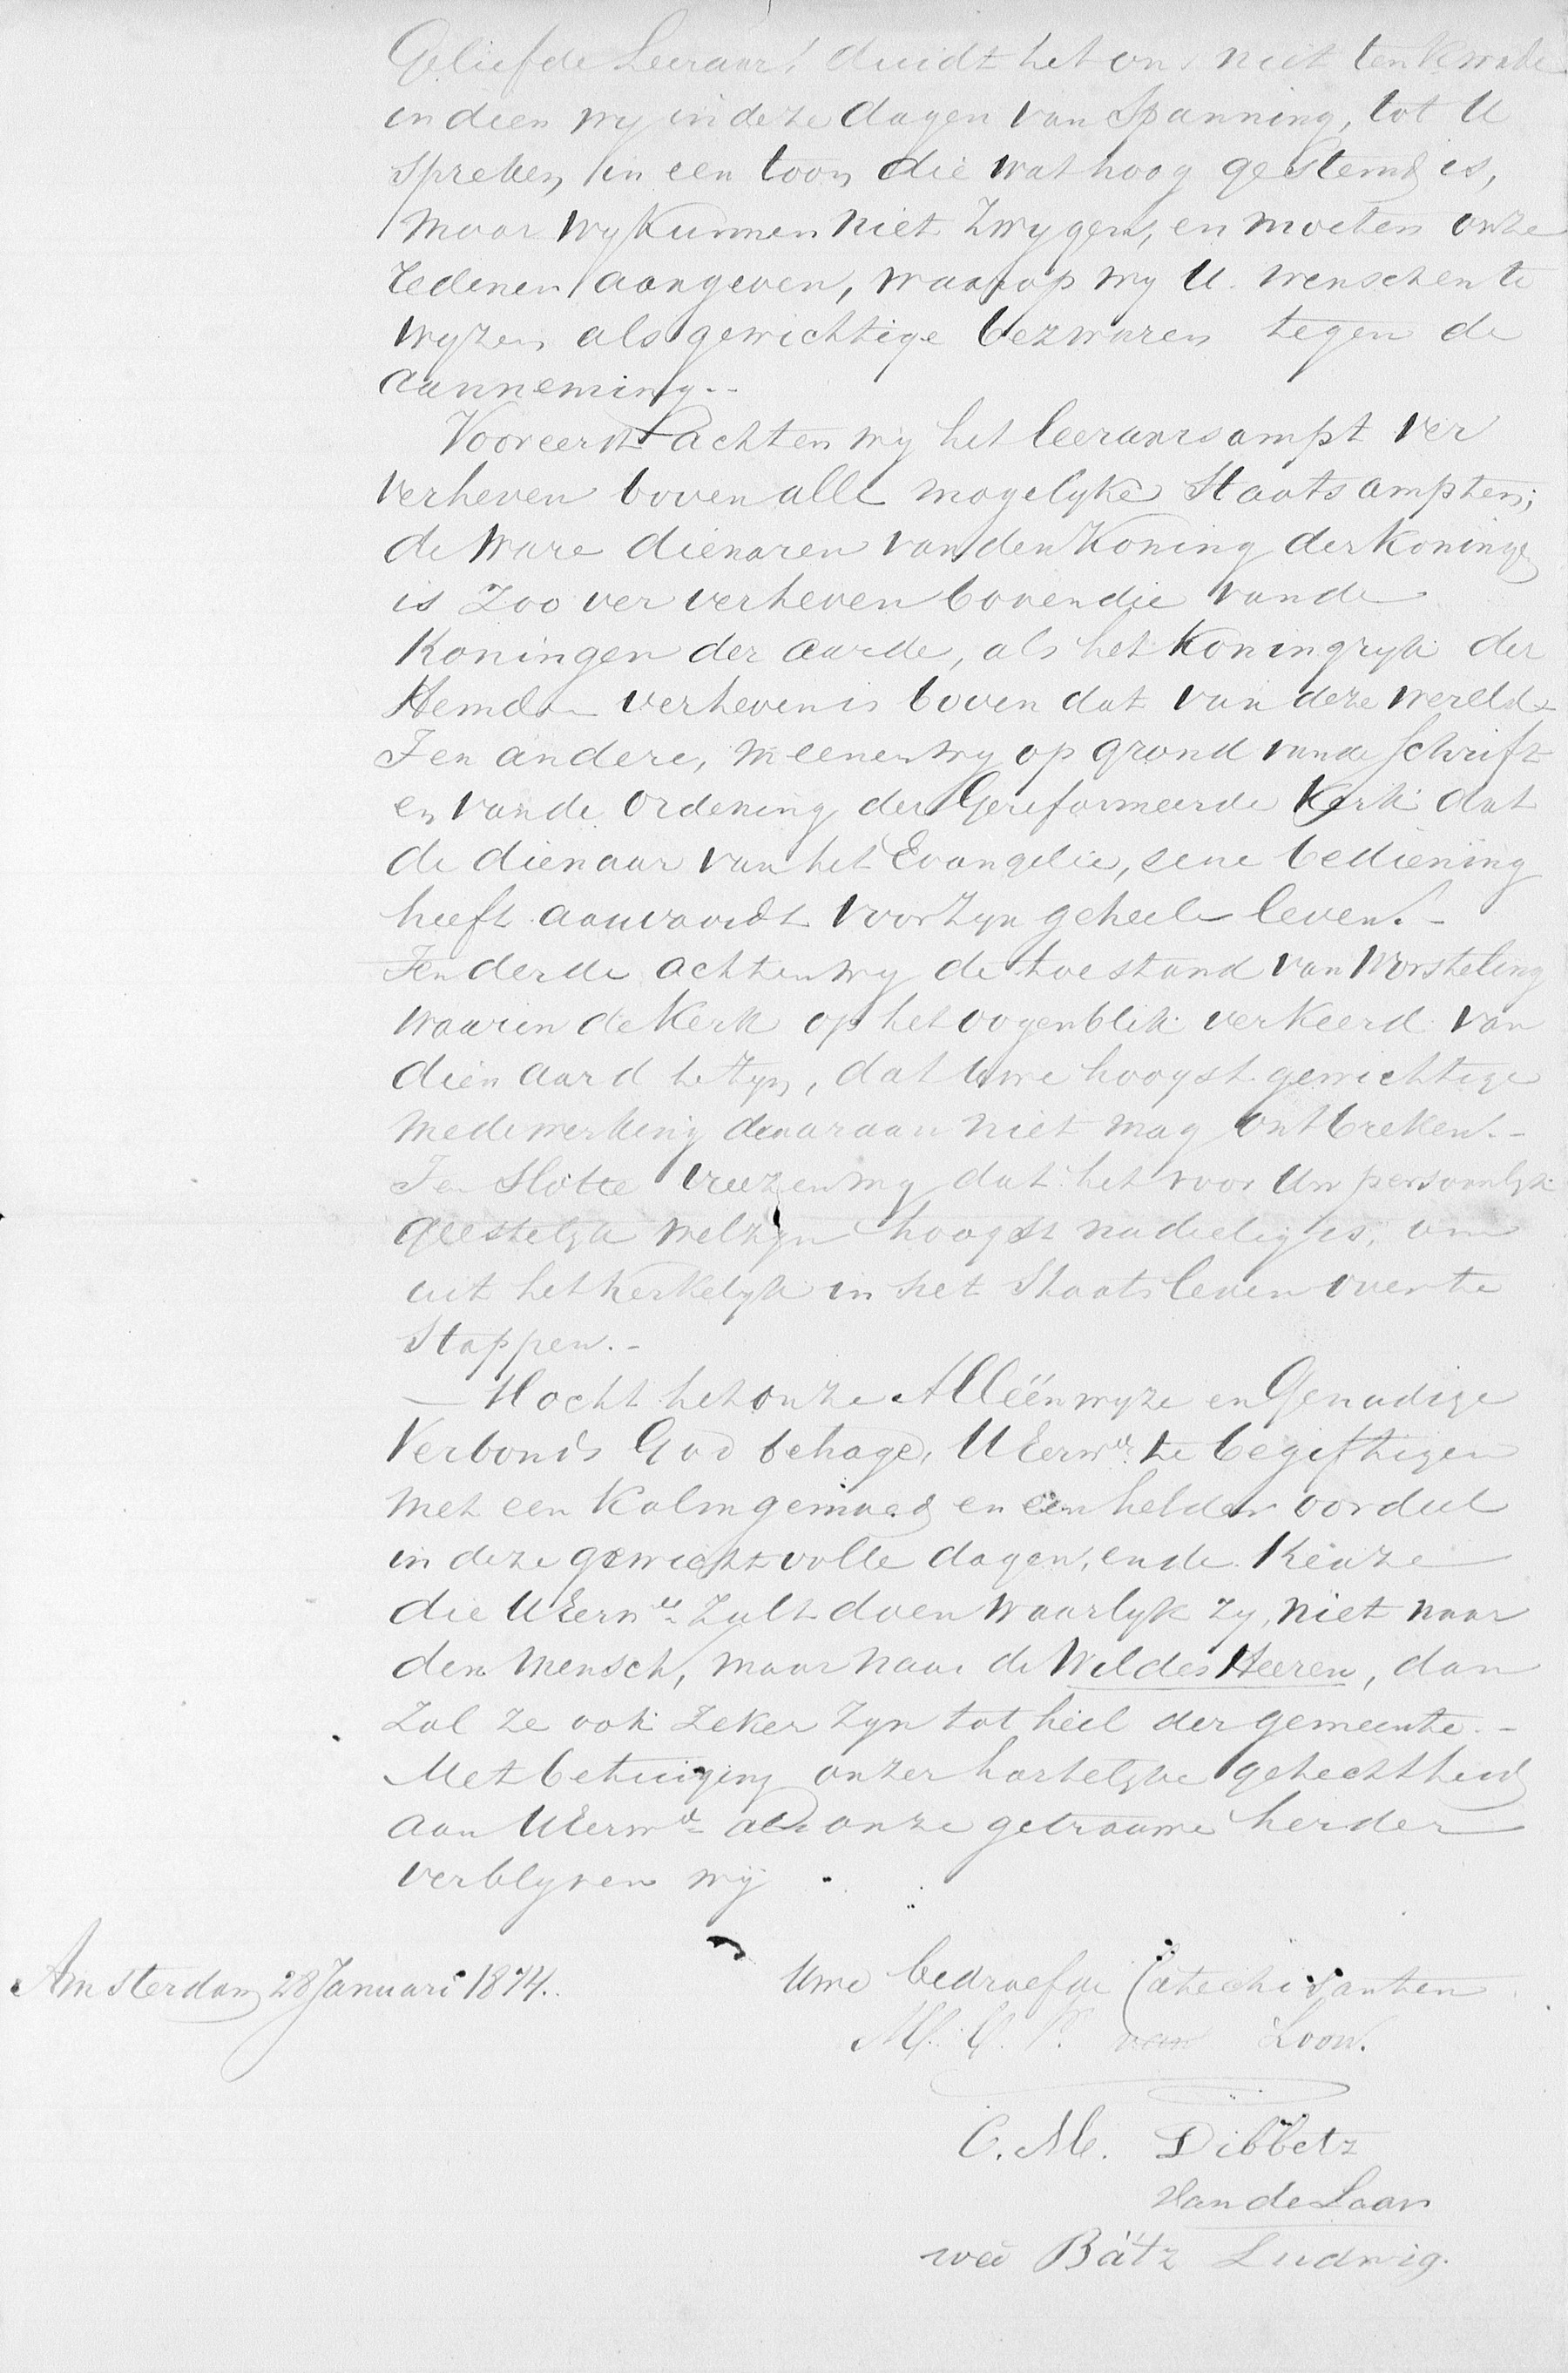 Geliefde Leeraar! duidt het ons niet ten kwade
indien wy in deze dagen van Spanning, tot U
spreken, in een toon die wat hoog gestemd is,
maar wy kunnen niet zwygen, en moeten onze
redenen aangeven, waarop wy U. wenschen te
wyzen als gewichtige bezwaren tegen de
aanneming.-
Vooreerst achten wy het leeraarsampt ver
verheven boven alle mogelyke Staatsampten;
de ware dienaren van den Koning der Koningen
is zoo ver verheven boven die van de
Koningen der aarde, als het Koningryk der
Hemelen verheven is boven dat van deze wereld.-
Ten andere, meenen wy op grond van de Schrift
en van de ordening der Gereformeerde Kerk dat
de dienaar van het Evangelie, eene bediening
heeft aanvaardt voor zyn geheele leven.-
Ten derde achten wy de toestand van Worsteling
waarin de Kerk op het oogenblik verkeerd van
dien aard te zyn, dat Uwe hoogst gewichtige
medewerking daaraan niet mag ontbreken.-
Ten Slotte vreezen wy dat het voor Uw persoonlyk
geestelyk welzyn hoogst nadeelig is, om
uit het kerkelyk in het Staatsleven over te
Stappen.-
— Mocht het onze Alléénwyze en Genadige
Verbonds God behage, UEerwd. te begiftigen
met een Kalm gemoed en een helder oordeel
in deze gewichtvolle dagen, en de Keuze
die UEerwd. zult doen waarlyk zy, niet naar
den mensch, maar naar de Wil des Heeren, dan
zal ze ook zeker zyn tot heil der gemeente.-
Met betuiging onzer hartelyke gehechtheid
aan UEerwd. als onze getrouwe herder
verblyven wy
Amsterdam 28 Januari 1874.
Uwe bedroefde Catechisanten
M. C. P. van Loon.
C. M. Dibbetz
Van de Laar
wed Bätz Ludwig.